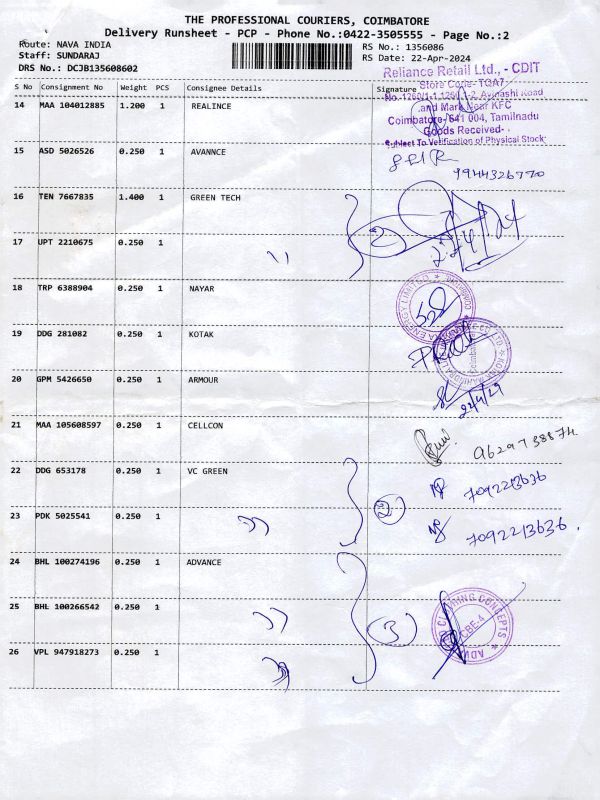 THE PROFESSIONAL COURIERS, COIMBATORE
Delivery Runsheet - PCP - Phone No.:0422-3505555 - Page No.:2
Route: NAVA INDIA
Staff: SUNDARAJ
DRS No.: DCJB135608602
RS No.: 1356086
RS Date: 22-Apr-2024
S No Consignment No Weight PCS Consignee Details Signature
Reliance Retail Ltd., - CDIT
Store Code- TGA7
Avinashi Road
and Mark Near KFC
Coimbatore-641 004, Tamilnadu
Goods Received-
Subject To Verification of Physical Stock
14 MAA 104012885 1.200 1 REALINCE
15 ASD 5026526 0.250 1 AVANNCE
9944326770
16 TEN 7667835 1.400 1 GREEN TECH
2
22/4/24
17 UPT 2210675 0.250 1 "
18 TRP 6388904 0.250 1 NAYAR
19 DDG 281082 0.250 1 KOTAK
20 GPM 5426650 0.250 1 ARMOUR
21 MAA 105608597 0.250 1 CELLCON
9629738874
22 DDG 653178 0.250 1 VC GREEN
7092213636
2
23 PDK 5025541 0.250 1 "
7092213636.
24 BHL 100274196 0.250 1 ADVANCE
25 BHL 100266542 0.250 1 "
3
CLOTHING CONCEPTS
CBE-4
26 VPL 947918273 0.250 1 "